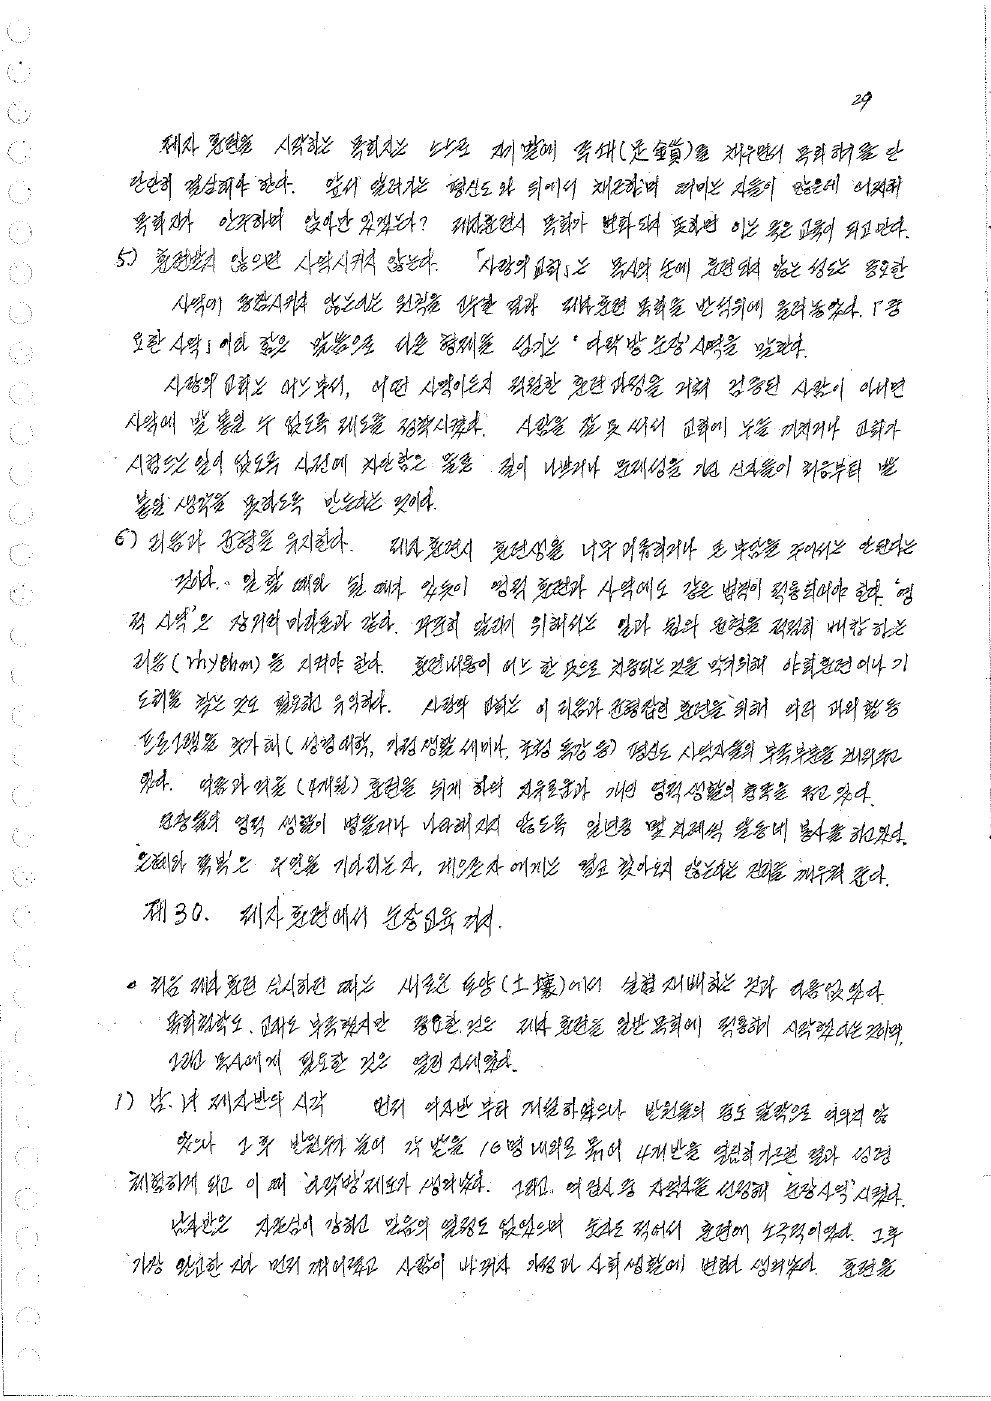 29
제자 훈련을 시작하는 목회자는 스스로 자기 발에 족쇄(足鎖)를 채우면서 목회하기를 단
단단히 결심해야 한다. 앞서 달려가는 평신도와 뒤에서 재촉하며 떠미는 자들이 많은데 어찌
목회자가 안주하며 앉아만 있겠는가? 제자훈련에서 목회가 변화되지 못하면 이는 죽은 교육이 되고 만다.
5) 훈련받지 않으면 사역시키지 않는다. 「사랑의 교회」는 목사의 손에 훈련되지 않는 성도는 중요한
사역에 동참시키지 않는다는 원칙을 고수한 결과 제자훈련 목회를 반석위에 올려놓았다. 「중
요한 사역」이라 함은 말씀으로 다른 형제를 섬기는 '다락방 순장'사역을 말한다.
사랑의 교회는 어느 부서, 어떤 사역이든지 적절한 훈련 과정을 거쳐 검증된 사람이 아니면
사역에 발 붙일 수 없도록 제도를 정착시켰다. 사람을 잘 못 써서 교회에 누를 끼치거나 교회가
시험드는 일이 없도록 사전에 차단함은 물론 질이 나쁘거나 문제성을 가진 신자들이 처음부터 발
붙일 생각을 못하도록 만든다는 것이다.
6) 리듬과 균형을 유지한다. 제자 훈련시 훈련생을 너무 괴롭히거나 큰 부담을 주어서는 안된다는
것이다. 일 할 때와 쉴 때가 있듯이 영적 훈련과 사역에도 같은 법칙이 적용되어야 한다. '영
적 사역'은 장거리 마라톤과 같다. 꾸준히 달리기 위해서는 일과 쉼의 균형을 적절히 배합하는
리듬(rhythm)을 지켜야 한다. 훈련내용이 어느 한 곳으로 치중되는 것을 막기위해 야외훈련이나 기
도회를 갖는 것도 필요하고 유익하다. 사랑의 교회는 이 리듬과 균형잡힌 훈련을 위해 여러 과외 활동
프로그램을 추가해(성경대학, 가정생활 세미나, 초청 특강 등) 평신도 사역자들의 부족부분을 채워주고
있다. 여름과 겨울(4개월) 훈련을 쉬게 하여 자유로움과 개인 영적 생활의 풍족을 주고 있다.
순장들의 영적 생활이 병들거나 나태해지지 않도록 일년중 몇 차례씩 활동에 봉사를 하고 있다.
'은혜와 축복'은 우연을 기다리는 자, 게으른 자에게는 결코 찾아오지 않는다는 진리를 깨우쳐 준다.
제30. 제자 훈련에서 순장교육 까지.
• 처음 제자 훈련 실시하던 때는 새로운 토양(土壤)에서 실험 재배하는 것과 다름 없었다.
목회철학도, 교재도 부족했지만 중요한 것은 제자 훈련을 일반 목회에 적용하여 시작했다는 것이며,
그리고 목사에게 필요한 것은 열린 자세였다.
1) 남.녀 제자반의 시작 먼저 여자반 부터 개설하였으나 반원들의 중도 탈락으로 여의치 않
았으나 그 후 반원수가 늘어 각 반을 10명 내외로 묶어 4개반을 열심히 가르친 결과 성령
체험하게 되고 이 때 '다락방'제도가 생겨났다. 그리고 여집사 중 자격자를 선정해 '순장사역'시켰다.
남자반은 자존심이 강하고 믿음의 열정도 없었으며 눈치도 적어서 훈련에 소극적이었다. 그후
가장 완고한 자가 먼저 깨어졌고 사람이 바뀌자 가정과 사회생활에 변화가 생겨났다. 훈련을